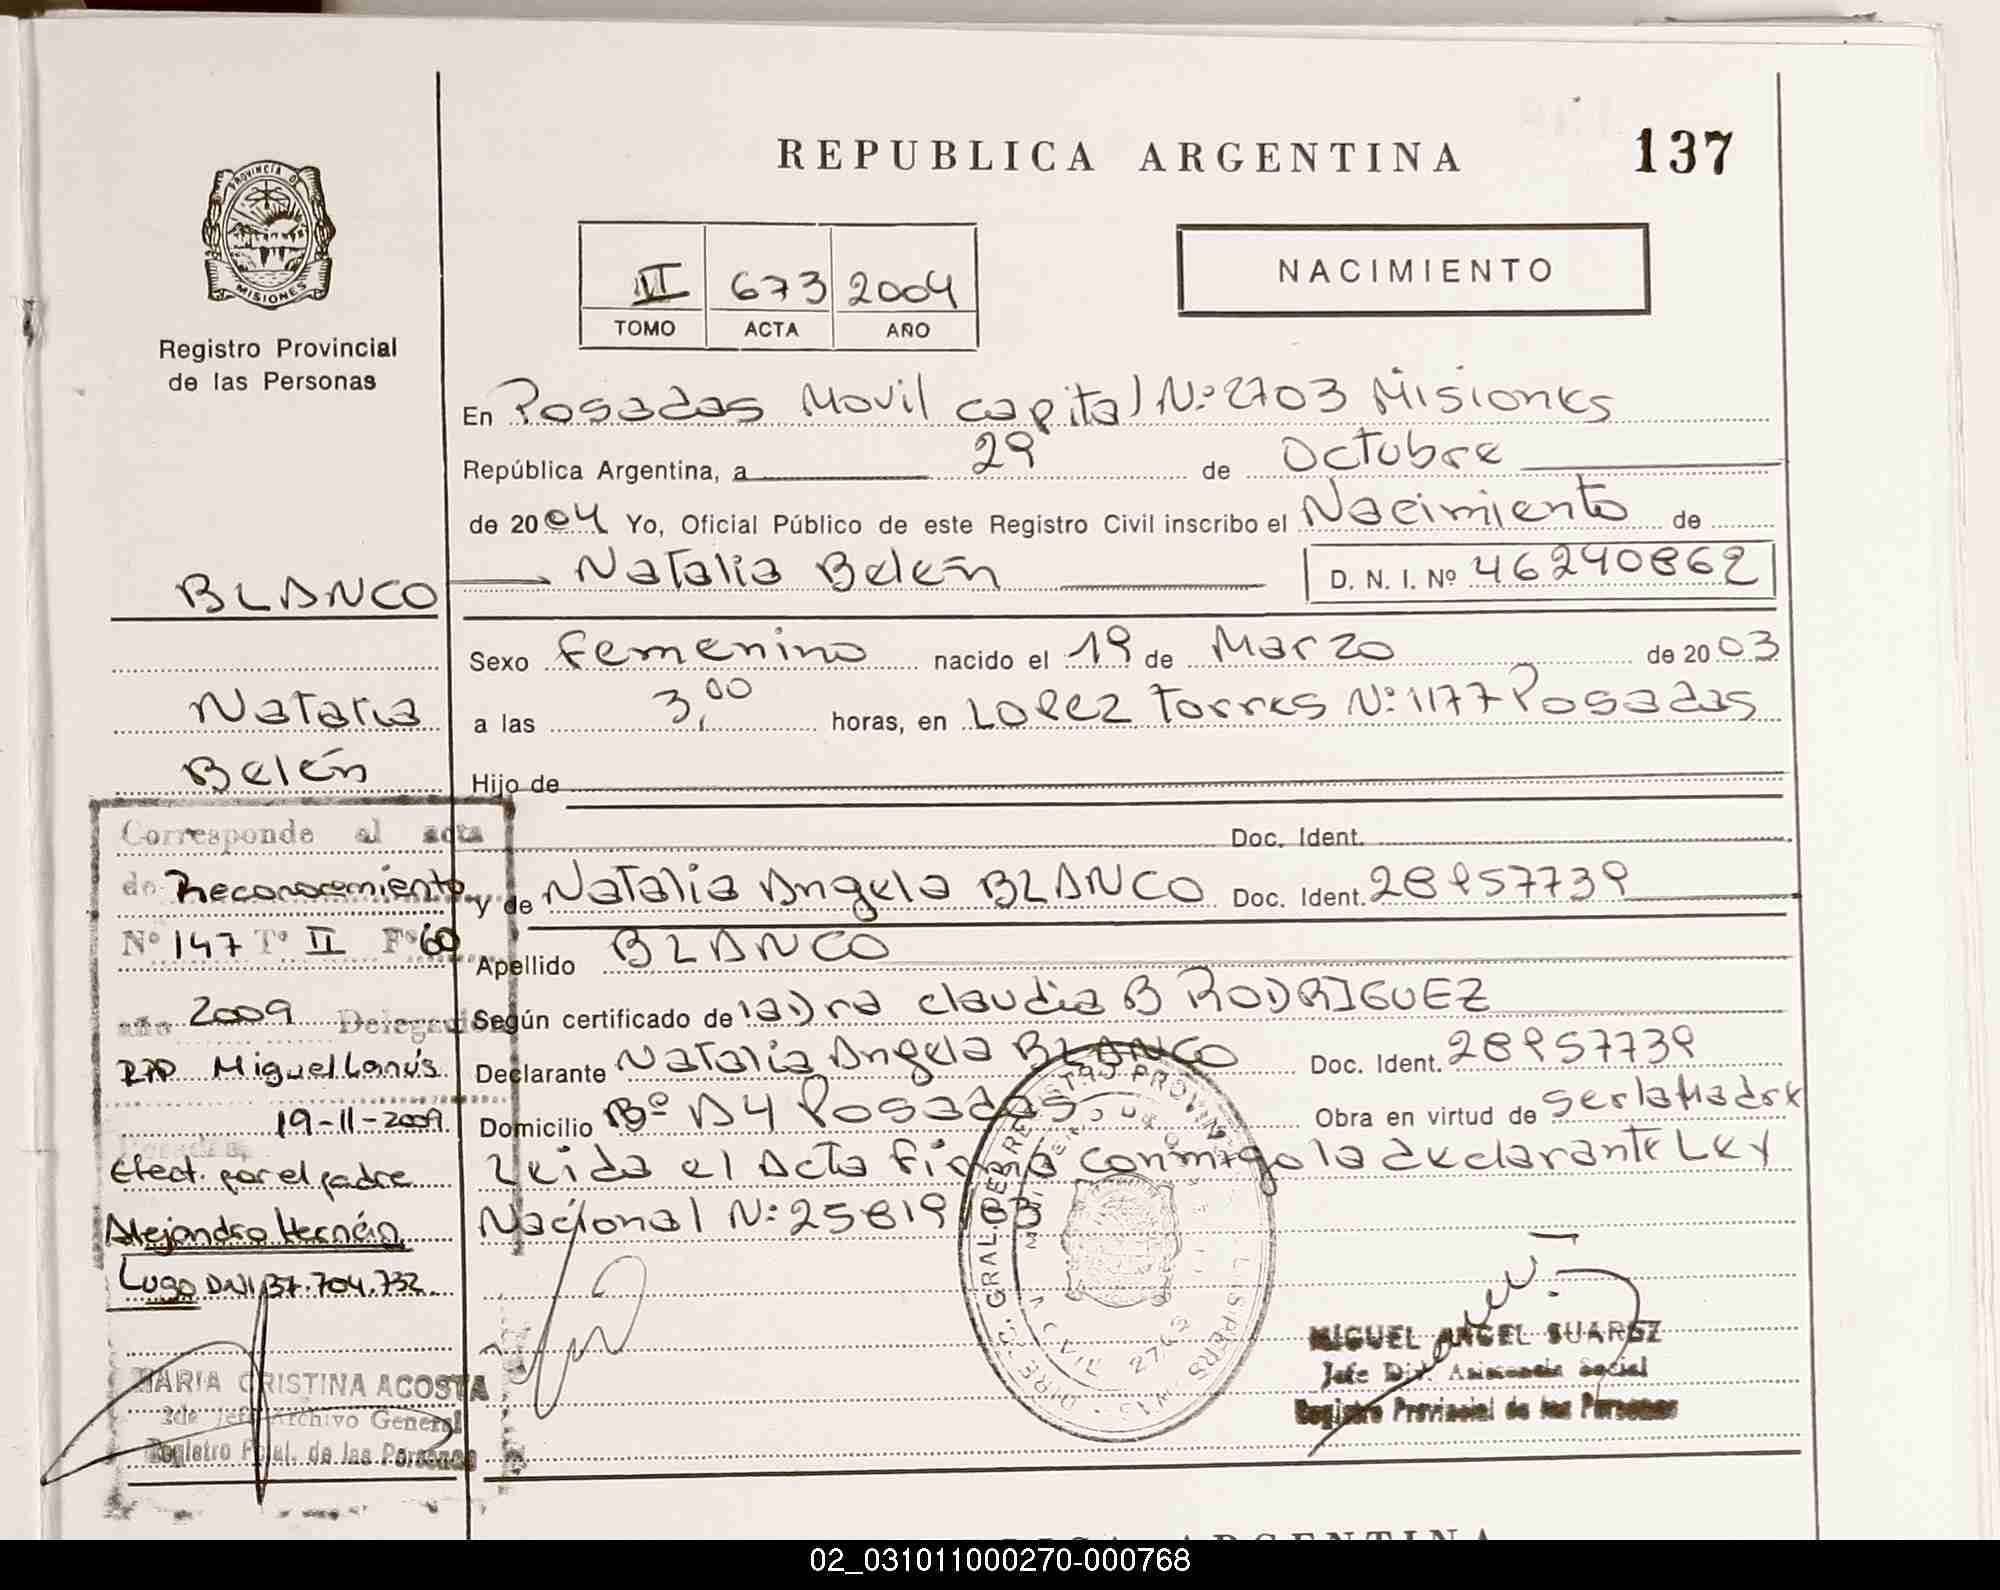 REPUBLICA ARGENTINA 137
PROVINCIA DE
MISIONES
Registro Provincial
de las Personas
II 673 2004
TOMO ACTA AÑO
NACIMIENTO
En Posadas Movil capital Nº 2703 Misiones
República Argentina, a 29 de Octubre
de 2004 Yo, Oficial Público de este Registro Civil inscribo el Nacimiento de
Natalia Belén D. N. I. Nº 46240862
BLANCO
Sexo Femenino nacido el 19 de Marzo de 2003
Natalia
a las 3,00 horas, en LOPEZ Torres Nº 1177 Posadas
Belén
Hijo de
Doc. Ident.
y de Natalia Angela BLANCO Doc. Ident. 28957739
Apellido BLANCO
Según certificado de la Dra Claudia B RODRIGUEZ
Declarante Natalia Angela BLANCO Doc. Ident. 28957739
Domicilio Bº A4 Posadas Obra en virtud de ser la Madre
Leida el Acta firma conmigo la declarante Ley
Nacional Nº 25819/03
Corresponde al acta
de Reconocimiento
Nº 147 Tº II Fº 60
año 2009 Delegación
RPP Miguel Lanús
19-11-2009
Efect. por el padre
Alejandro Hernán
Lugo DNI 37.704.732
MARIA CRISTINA ACOSTA
2do Jefe Archivo General
Registro Pcial. de las Personas
2703
MIGUEL ANGEL SUAREZ
Jefe Div. Asistencia Social
Registro Provincial de las Personas
ARGENTINA
02_031011000270-000768